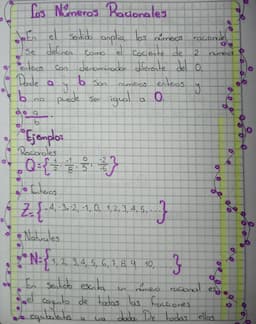 Los Números Racionales
En el sentido amplio, los números racionales
Se definen como el cociente de 2 números
enteros con denominador diferente del 0.
Donde a y b son números enteros y
b no puede ser igual a 0.
a
b
Ejemplos
Racionales
Enteros
Z={ -4,-3,-2,-1,0,1,2,3,4,5, }
Naturales
N={1,2,3,4,5,6,7,8,9,10, }
En sentido escrito un número racional es
el conjunto de todas las fracciones
equivalentes a una dada De todas ellas